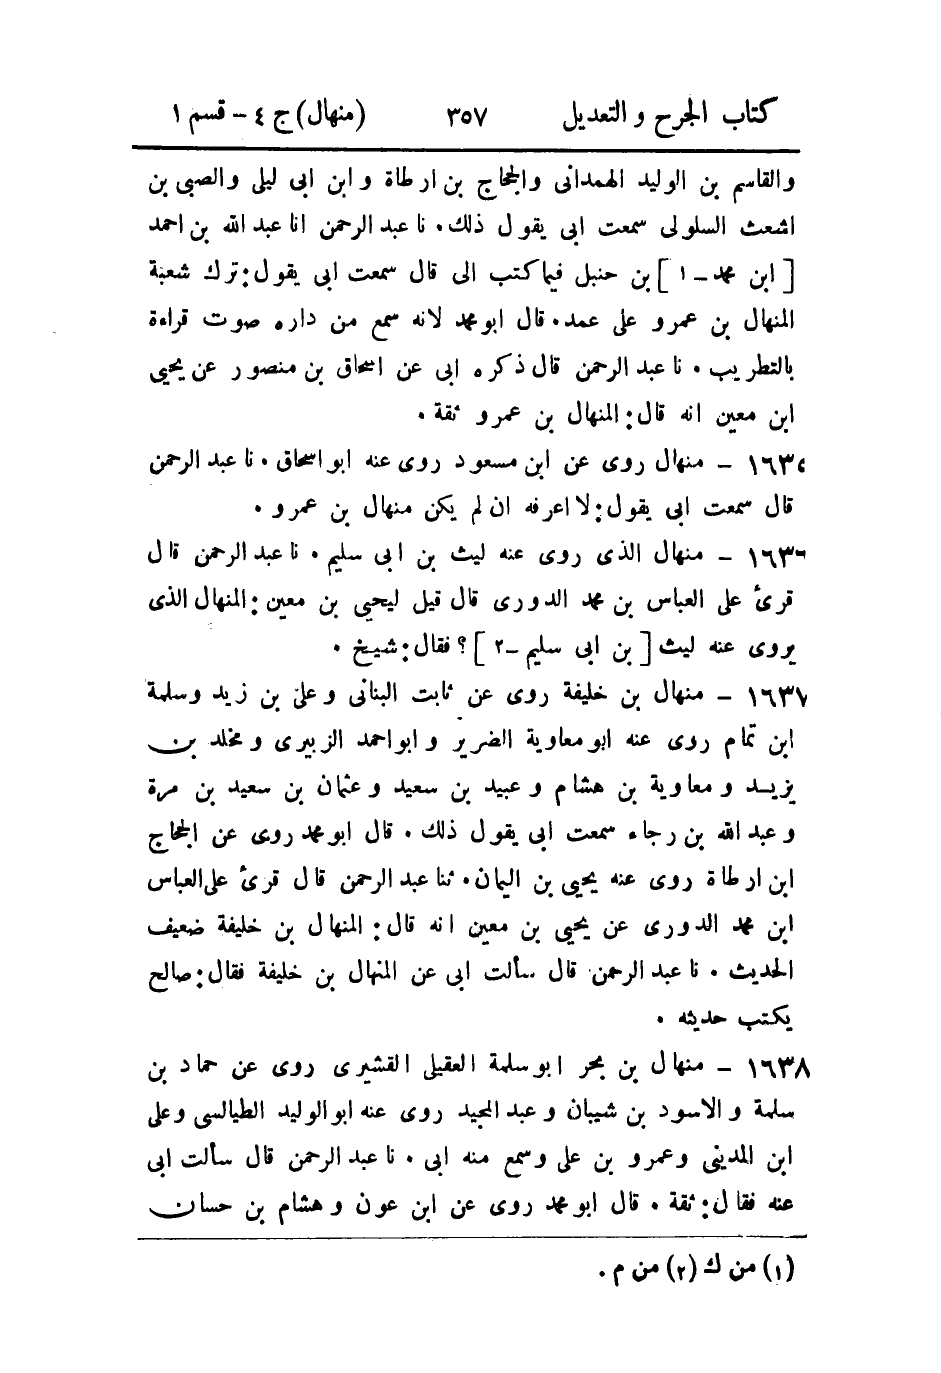 كتاب الجرح و التعديل ٣٥٧ (منهال) ج ٤ – قسم ١
والقاسم بن الوليد الهمدانى والحجاج بن ارطاة و ابن ابى ليلى والصبى بن
اشعث السلولى سمعت ابى يقول ذلك . نا عبد الرحمن انا عبد الله بن احمد
[ ابن محمد – ١ ] بن حنبل فيما كتب الى قال سمعت ابى يقول : ترك شعبة
المنهال بن عمرو على عمد . قال ابو محمد لانه سمع من داره صوت قراءة
بالتطريب . نا عبد الرحمن قال ذكره ابى عن اسحاق بن منصور عن يحيى
ابن معين انه قال : المنهال بن عمرو ثقة .
١٦٣٥ – منهال روى عن ابن مسعود روى عنه ابو اسحاق . نا عبد الرحمن
قال سمعت ابى يقول : لا اعرفه ان لم يكن منهال بن عمرو .
١٦٣٦ – منهال الذى روى عنه ليث بن ابى سليم . نا عبد الرحمن قال
قرئ على العباس بن محمد الدورى قال قيل ليحيى بن معين : المنهال الذى
يروى عنه ليث [ بن ابى سليم – ٢ ] ؟ فقال : شيخ .
١٦٣٧ – منهال بن خليفة روى عن ثابت البنانى و على بن زيد وسلمة
ابن تمام روى عنه ابو معاوية الضرير و ابو احمد الزبيرى و مخلد بن
يزيد و معاوية بن هشام و عبيد بن سعيد و عثمان بن سعيد بن مرة
و عبد الله بن رجاء سمعت ابى يقول ذلك . قال ابو محمد روى عن الحجاج
ابن ارطاة روى عنه يحيى بن اليمان . ثنا عبد الرحمن قال قرئ على العباس
ابن محمد الدورى عن يحيى بن معين انه قال : المنهال بن خليفة ضعيف
الحديث . نا عبد الرحمن قال سألت ابى عن المنهال بن خليفة فقال : صالح
يكتب حديثه .
١٦٣٨ – منهال بن بحر ابو سلمة العقيلى القشيرى روى عن حماد بن
سلمة و الاسود بن شيبان و عبد المجيد روى عنه ابو الوليد الطيالسى و على
ابن المدينى وعمرو بن على وسمع منه ابى . نا عبد الرحمن قال سألت ابى
عنه فقال : ثقة . قال ابو محمد روى عن ابن عون و هشام بن حسان
(١) من ك (٢) من م .